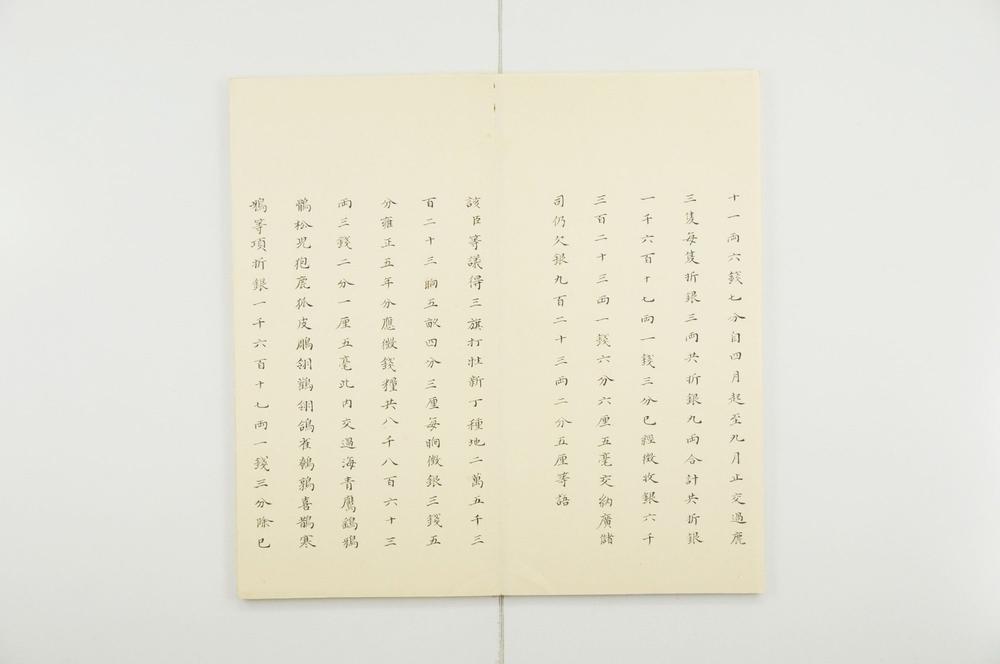 十一両六錢七分自四月起至九月止交過鹿
三隻每隻折銀三両共折銀九両合計共折銀
一千六百十七両一錢三分已經徵收銀六千
三百二十三両一錢六分六厘五毫交納廣儲
司仍欠銀九百二十三両二分五厘等語
該臣等議得三旗打牲新丁種地二萬五千三
百二十三晌五畝四分三厘每晌徵銀三錢五
分雍正五年分應徵錢糧共八千八百六十三
両三錢二分一厘五毫此內交過海青鷹鷂鴉
鶻松兒狍鹿狐皮鵰翎鸛翎鴿雀鵪鶉喜鵲寒
鴉等項折銀一千六百十七両一錢三分除已